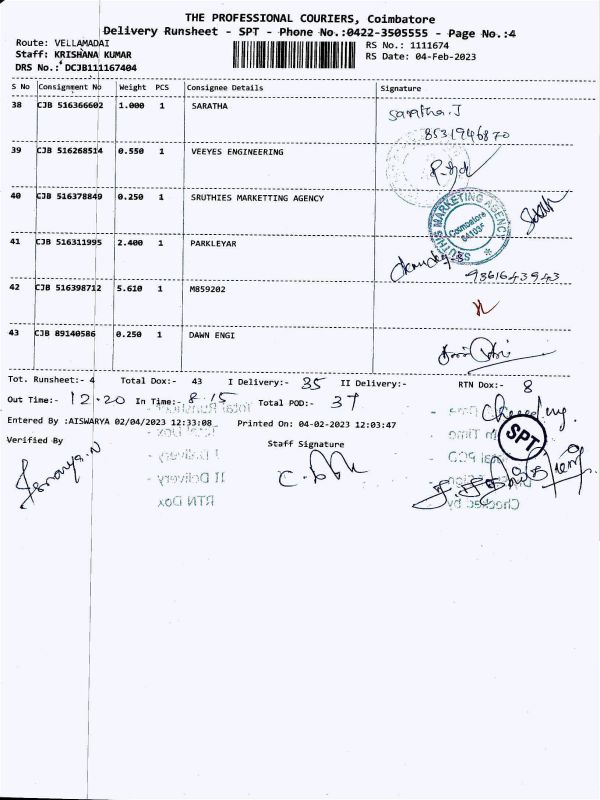 THE PROFESSIONAL COURIERS, Coimbatore
Delivery Runsheet - SPT - Phone No.:0422-3505555 - Page No.:4
Route: VELLAMADAI
Staff: KRISHANA KUMAR
DRS No.: DCJB111167404
RS No.: 1111674
RS Date: 04-Feb-2023
S No Consignment No Weight PCS Consignee Details Signature
38 CJB 516366602 1.000 1 SARATHA
Saratha.J
8531946870
39 CJB 516268514 0.550 1 VEEYES ENGINEERING
40 CJB 516378849 0.250 1 SRUTHIES MARKETTING AGENCY
SRUTHIS MARKETING AGENCY
Coimbatore
641035
41 CJB 516311995 2.400 1 PARKLEYAR
9361643943
42 CJB 516398712 5.610 1 M859202
43 CJB 89140586 0.250 1 DAWN ENGI
Tot. Runsheet:- 4 Total Dox:- 43 I Delivery:- 35 II Delivery:- RTN Dox:- 8
Out Time:- 12.20 In Time:- 8.15 Total POD:- 37
Entered By :AISWARYA 02/04/2023 12:33:08 Printed On: 04-02-2023 12:03:47
Verified By Staff Signature
SPT
Total Dox
I Delivery
II Delivery
RTN Dox
Checked by